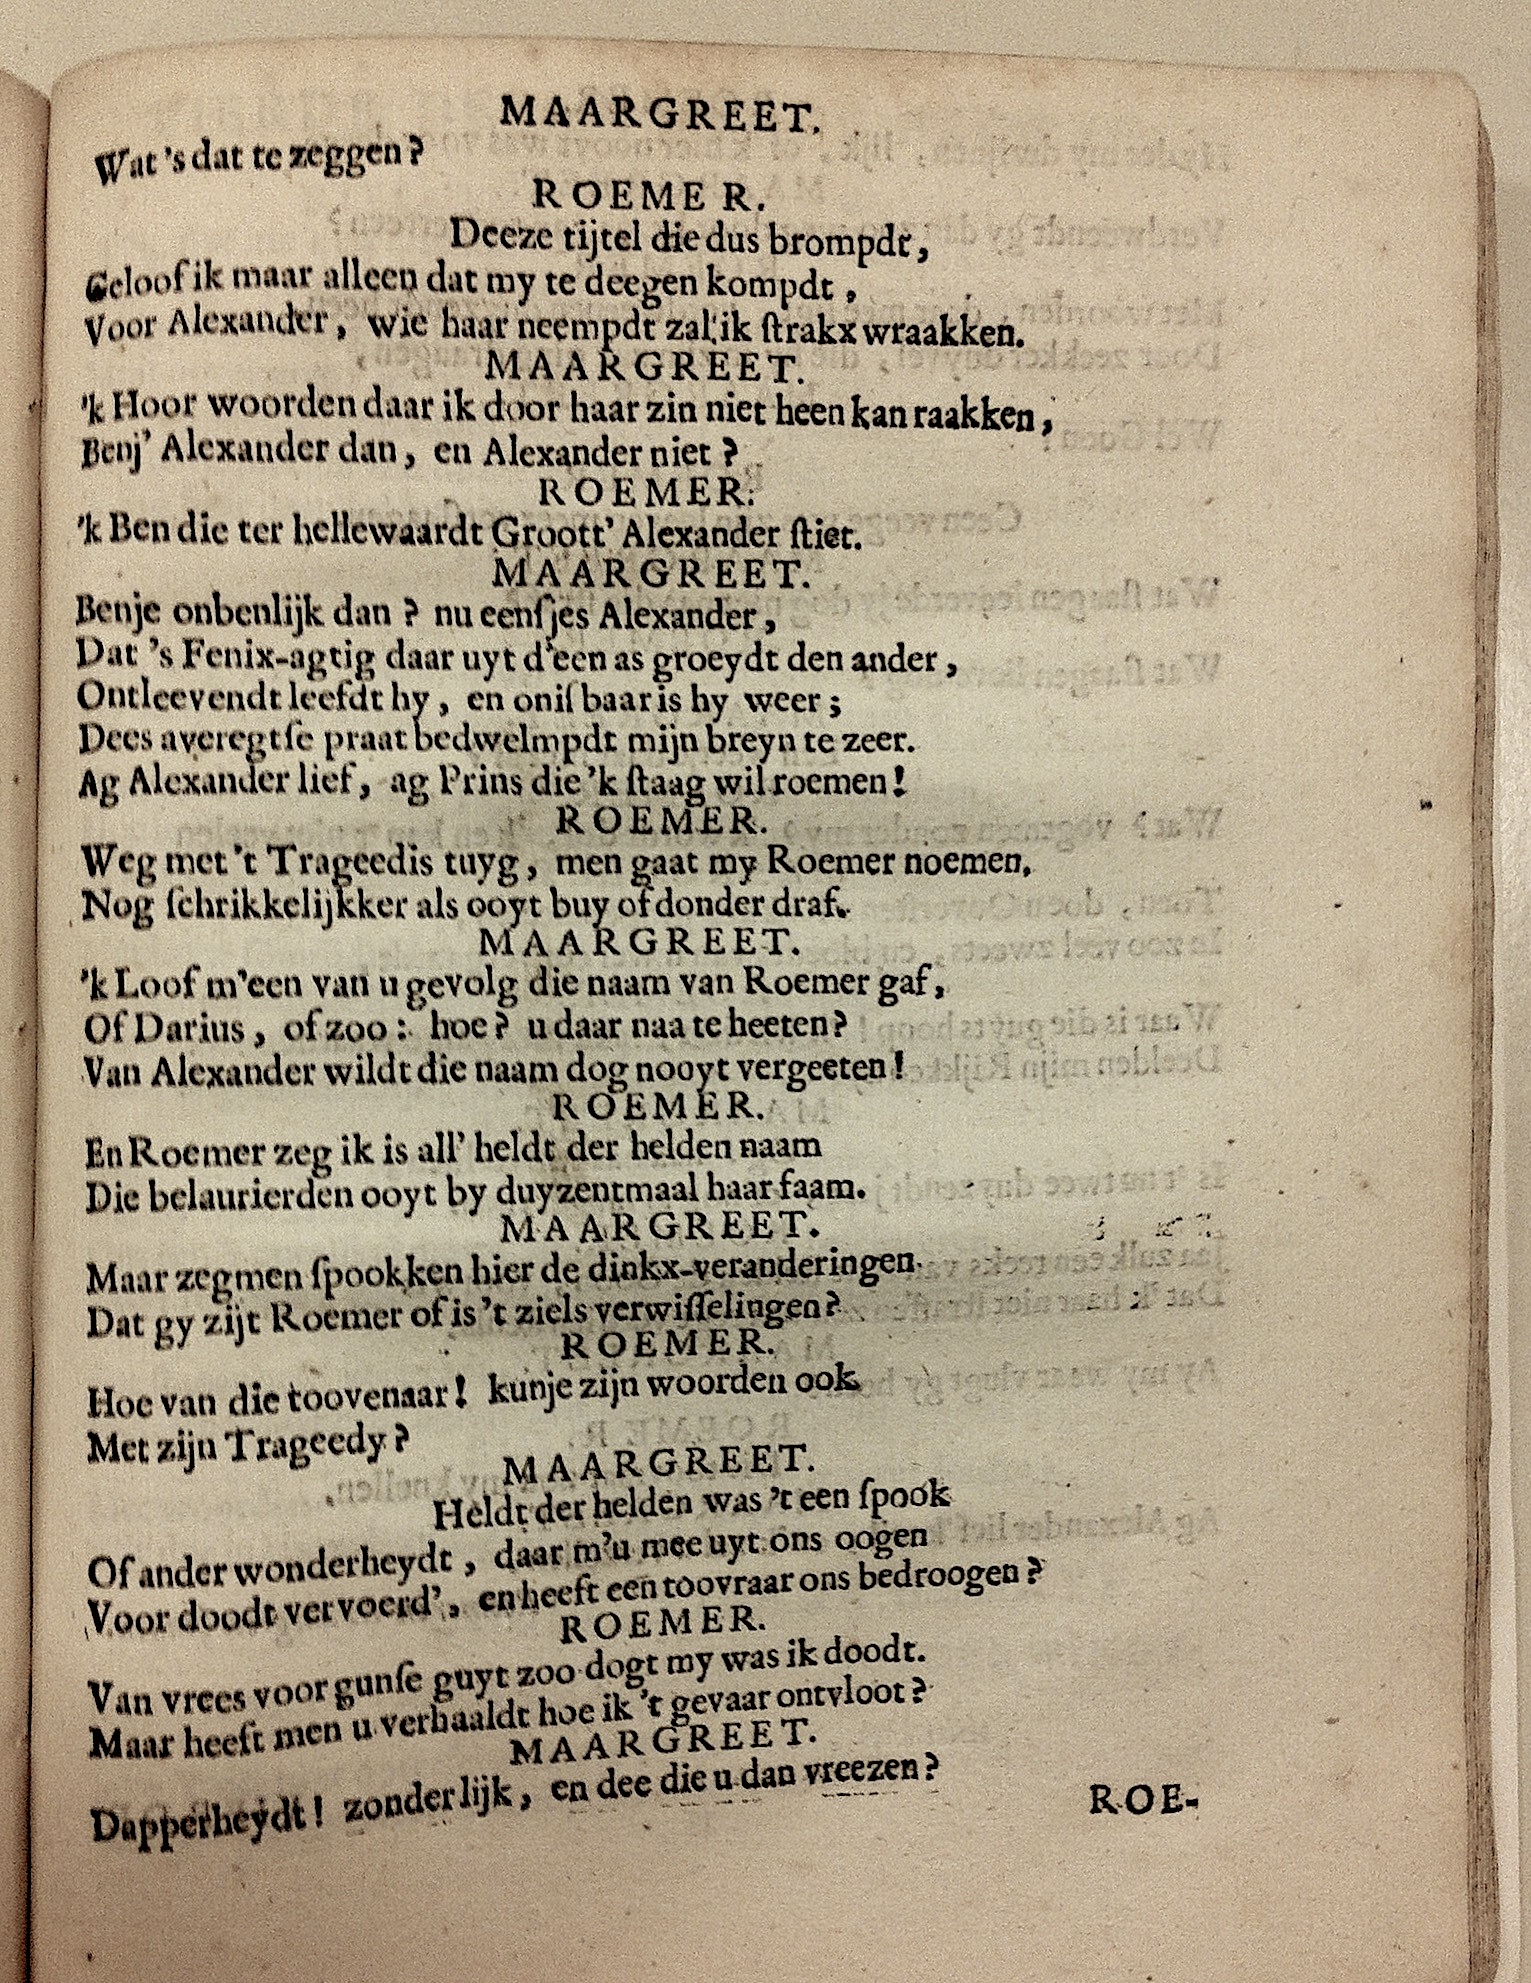 MAARGREET.
Wat 's dat te zeggen?
ROEMER.
Deeze tijtel die dus brompdt,
Geloof ik maar alleen dat my te deegen kompdt,
Voor Alexander, wie haar neempdt zal ik ſtrakx wraakken.
MAARGREET.
'k Hoor woorden daar ik door haar zin niet heen kan raakken,
Benj' Alexander dan, en Alexander niet?
ROEMER.
'k Ben die ter hellewaardt Groott' Alexander ſtiet.
MAARGREET.
Benje onbenlijk dan? nu eenſjes Alexander,
Dat 's Fenix-agtig daar uyt d'een as groeydt den ander,
Ontleevendt leefdt hy, en oniſbaar is hy weer;
Dees averegtſe praat bedwelmpdt mijn breyn te zeer.
Ag Alexander lief, ag Prins die 'k ſtaag wil roemen!
ROEMER.
Weg met 't Trageedis tuyg, men gaat my Roemer noemen,
Nog ſchrikkelijkker als ooyt buy of donder draf.
MAARGREET.
'k Loof m'een van u gevolg die naam van Roemer gaf,
Of Darius, of zoo: hoe? u daar naa te heeten?
Van Alexander wildt die naam dog nooyt vergeeten!
ROEMER.
En Roemer zeg ik is all' heldt der helden naam
Die belaurierden ooyt by duyzentmaal haar faam.
MAARGREET.
Maar zegmen ſpookken hier de dinkx-veranderingen
Dat gy zijt Roemer of is 't ziels verwiſſelingen?
ROEMER.
Hoe van die toovenaar! kunje zijn woorden ook
Met zijn Trageedy?
MAARGREET.
Heldt der helden was 't een ſpook
Of ander wonderheydt, daar m'u mee uyt ons oogen
Voor doodt vervoerd', en heeft een toovraar ons bedroogen?
ROEMER.
Van vrees voor gunſe guyt zoo dogt my was ik doodt.
Maar heeft men u verhaaldt hoe ik 't gevaar ontvloot?
MAARGREET.
Dapperheydt! zonderlijk, en dee die u dan vreezen?
ROE-